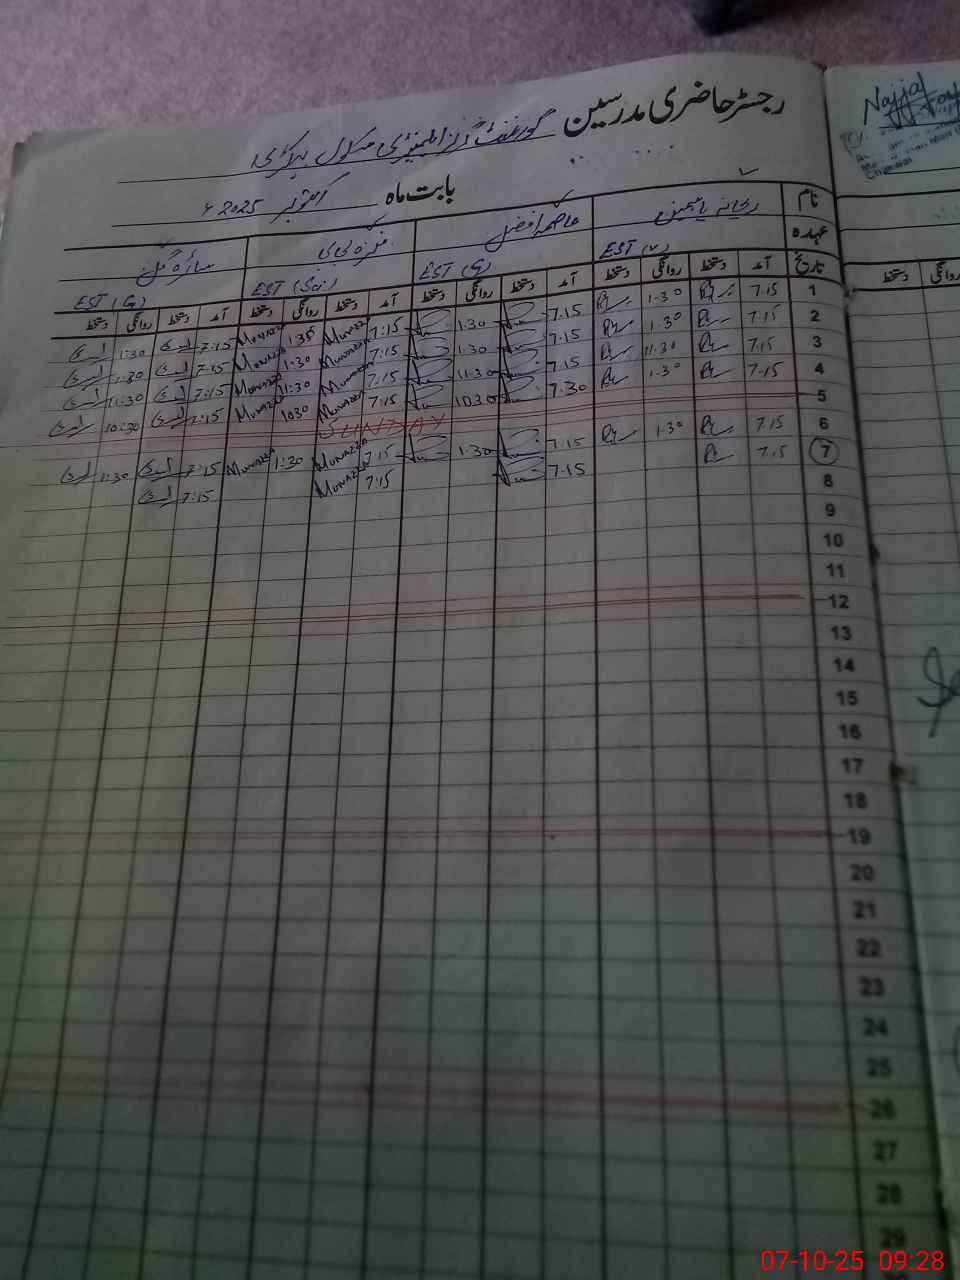 رجسٹر حاضری مدرسین گورنمنٹ گرلز ایلیمنٹری سکول
بابت ماہ اکتوبر 2025ء
نام ریحانہ یاسمین
عہدہ EST (V) EST (G) EST (Sci) EST (G)
تاریخ آمد دستخط روانگی دستخط آمد دستخط روانگی دستخط آمد دستخط روانگی دستخط آمد دستخط روانگی دستخط
1 7.15 1.30 7.15 1.30 7:15 Munazza 1:35 Munazza 7:15 1:30
2 7.15 1.30 7.15 1.30 7:15 Munazza 1:30 Munazza 7:15 1:30
3 7.15 11.30 7.15 11.30 7:15 Munazza 11:30 Munazza 7:15 11:30
4 7.15 1.30 7.30 10.30 7:15 Munazza 1030 Munazza 7:15 10:30
5 SUNDAY
6 7.15 1.30 7.15 1.30 7.15 Munazza 1:30 Munazza 7:15 1:30
7 7.15 7.15 7:15 Munazza 7:15
8
9
10
11
12
13
14
15
16
17
18
19
20
21
22
23
24
25
26
27
28
29
Najjaf
دستخط روانگی
07-10-25 09:28